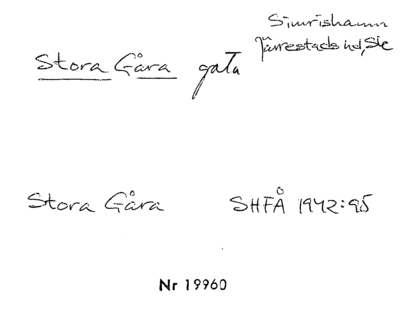 Simrishamn
Järrestads hd, Sk
Stora Gåra gata
Stora Gåra SHFÅ 1942:95
Nr 19960